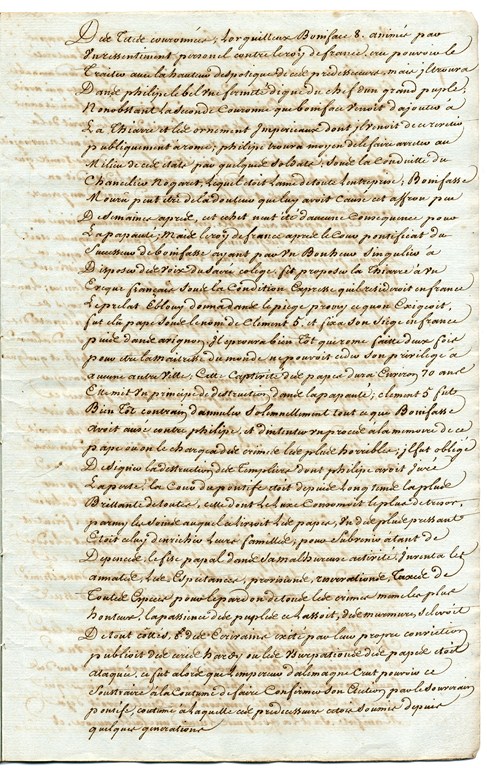 Des Tetes couronnées, Lorguilleux Boniface 8. animés par
Un ressentiment personel contre le roy de france, cru pouvoir le
Traiter avec la hauteur despotique de ces predesseurs, mais jl trouva
Dans philipe le bel Une fermeté digne du chef d'un grand peuple,
Nonobstant la seconde Couronne que boniface Venoit d'ajouter a
La Thiarre et les ornement Imperiaux dont jl Venoit de ce revetir
publiquement a rome; philipe trouva moyen de le faire arreter au
Milieu de ces etats par quelques soldats, sous la Conduitte du
Chancelier Nogaret, lequel etoit lame de toute lentreprise; Boniffasse
Mourú peut être de la douleur que luy avoit Causé cet affron peu
De semaines aprés, et cet echet nut été d'aucune Consequence pour
La papauté; Mais le roy de france aprés le Cour pontificat du
Successeur de boniffasse ayant par Un Bonheur Singulier a
Disposer des Voix du Sacré colege, fit proposer la Thiarre à Un
Eveque français sous la Condition Expresse quil residroit en france
Le prelat Eblouy donna dans le piege promy ce quon Exigeoit,
fut élu pape Sous le nom de Clement 5. et fixa Son Siege en france
puis dans avignon; Il eprouva bien Tôt que rome faite deux fois
pour être la Maitresse du monde ne pouvoit céder Son privilége à
aucune autre Ville; Cette Captivité des papes dura Environ 70 ans
Et le mit Un principe de destruction dans la papauté; clement 5 fute
Bien Tôt contrain d'annuler Solemnellement tout ce que Boniffasse
avoit avancé contre philipe, et d'intenter Un procés à la mémoire de ce
pape ou on le chargea des crimes les plus horribles; jl fut obligé
De Signer la destruction des Templiers dont philipe avoit juré
La perte; la Cour du pontife étoit depuis Long tems la plus
Brillante de toutes, cette dont le Luxe Consommoit le plus de tresor,
parmy les Soins auquel se livroit les papes, Un des plus pressant
Etoit celuy d'enrichir leurs familles; pour Subvenir a tant de
Depences, le fisc papal dans Sa malheureuse activité, Inventa les
annattes, Les Expectances, provisions, reservations, Taxes de
Toutes Especes pour le pardon de tous les crimes memes les plus
honteux; la passience des peuples ce Lassoit, des murmures, S'elevoit
De tout cottés, & des Ecrivains excité par leur propre conviction
publioit des ecris hardy ou les Usurpations des papes etoit
ataqués, ce fut alors que l'empereur d'alemagne Crut pouvoir ce
Soustraire a la Coutume de faire Confirmer Son Election par le Souverain
pontife, coutume a laquelle ces predecesseurs etoit Soumis depuis
quelques generations